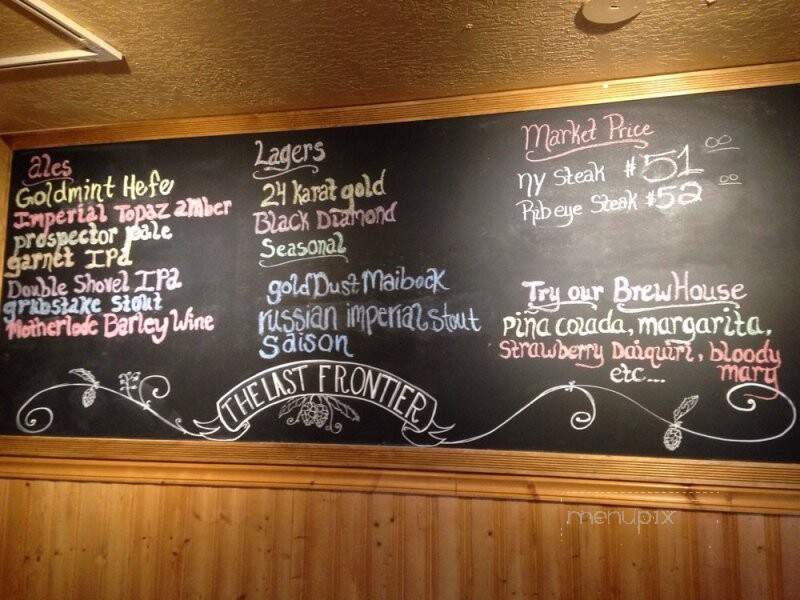 Ales
Goldmint Hefe
Imperial Topaz amber
prospector pale
Garnet IPa
Double Shovel IPa
grubstake stout
Motherlode Barley Wine
Lagers
24 karat gold
Black Diamond
Seasonal
gold Dust Maibock
russian imperial stout
Saison
Market Price
ny Steak $51.00
Ribeye Steak $52.00
Try our BrewHouse
Piña colada, margarita,
Strawberry Daiquiri, bloody
etc... mary
THE LAST FRONTIER
menupix